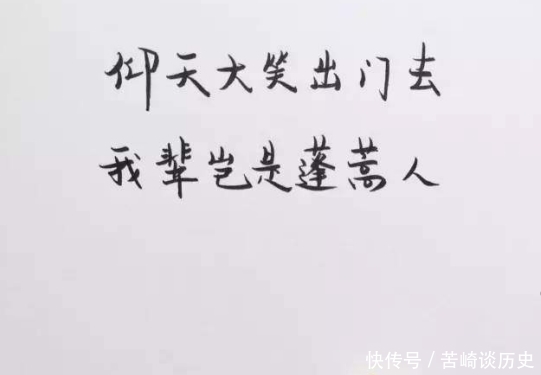 仰天大笑出门去
我辈岂是蓬蒿人
快传号/苦崎谈历史